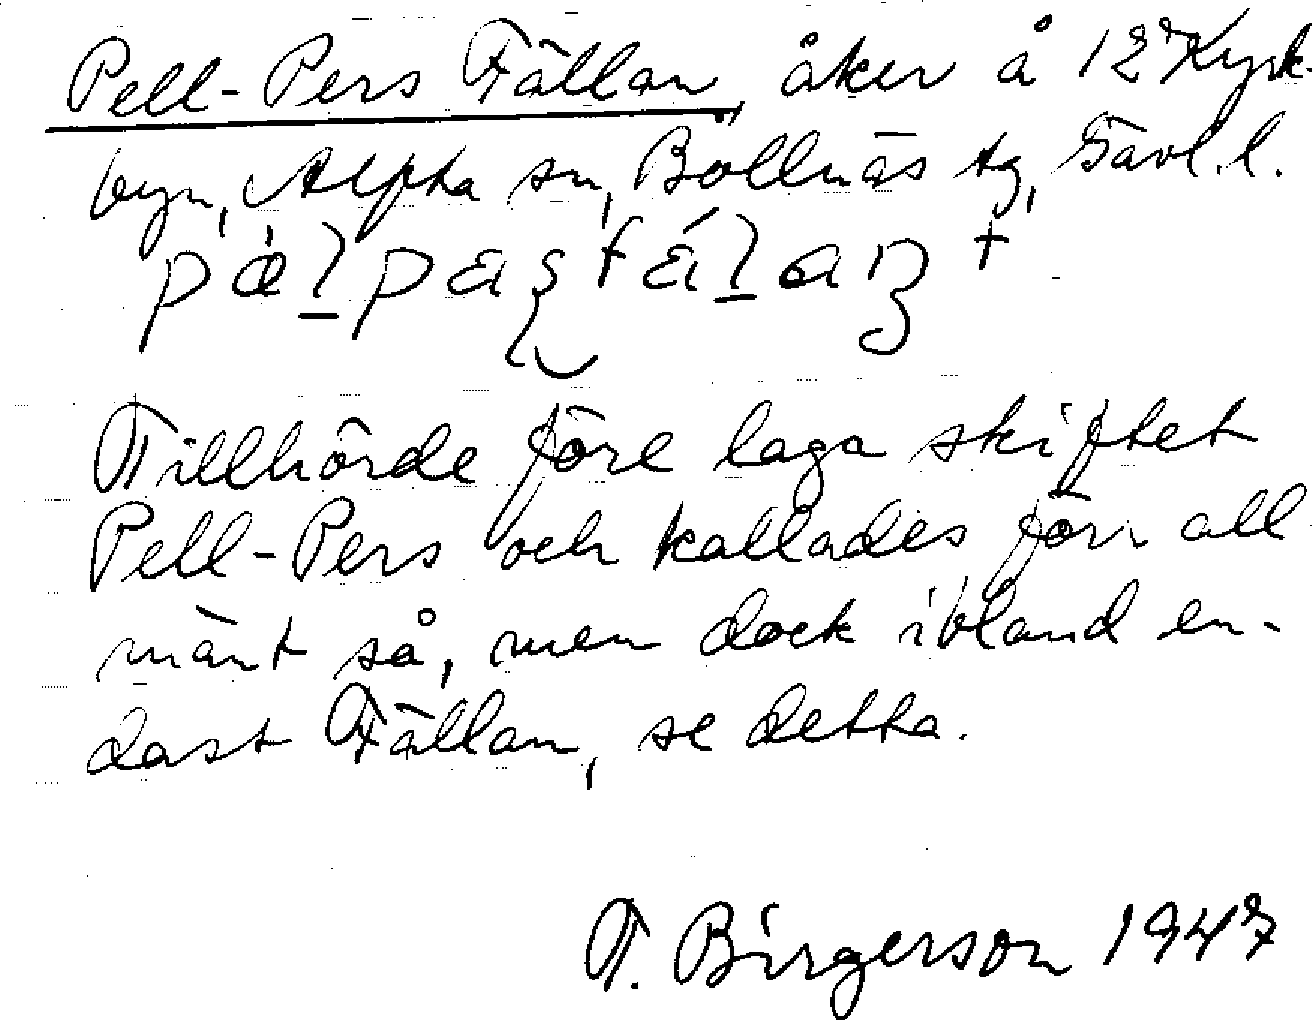 Pell-Pers Fällan, åker å 12 Kyrk-
byn, Alfta sn, Bollnäs tg, Gävl. l.
Tillhörde före laga skiftet
Pell-Pers och kallades förr all
mänt så, men dock ibland en-
dast Fällan, se detta.
T. Birgerson 1947